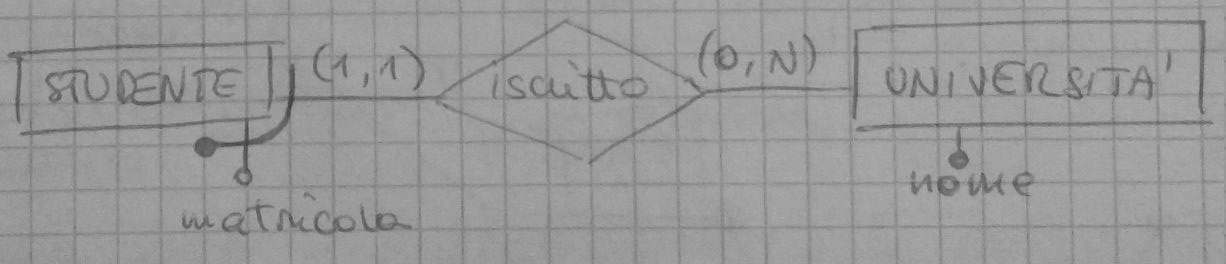 STUDENTE (1,1) iscritto (0,N) UNIVERSITA'
nome
matricola